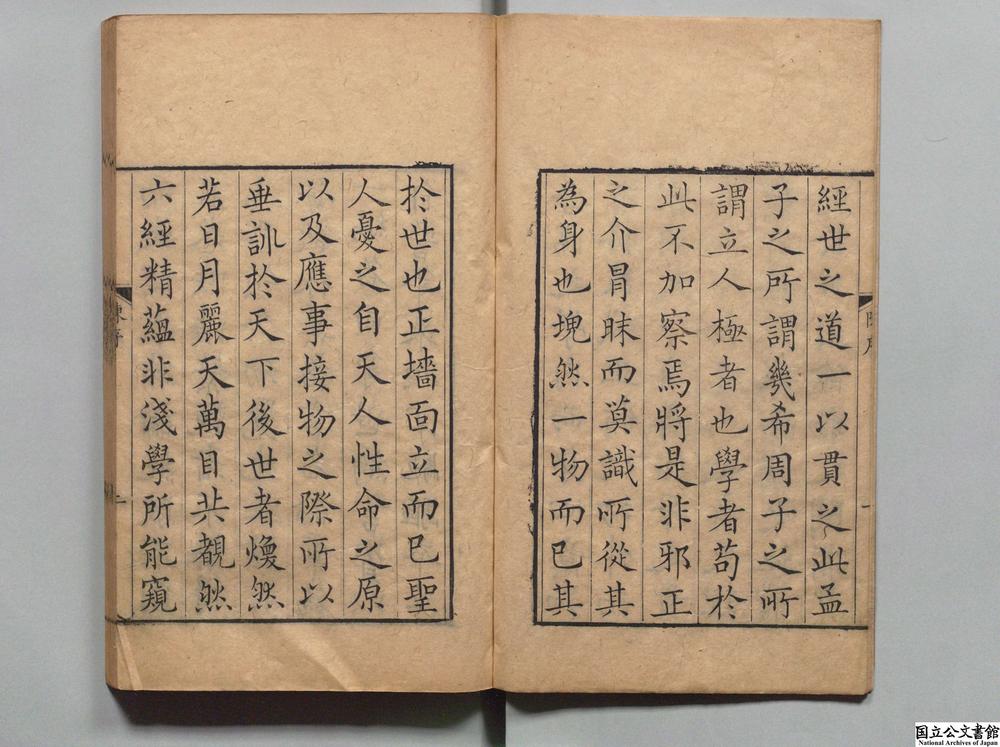 經世之道一以貫之此孟
子之所謂幾希周子之所
謂立人極者也學者苟於
此不加察焉將是非邪正
之介冒昧而莫識所從其
為身也塊然一物而已其
於世也正墻靣立而已聖
人憂之自天人性命之原
以及應事接物之際所以
垂訓於天下後世者煥然
若日月麗天萬目共覩然
六經精蘊非淺學所能窺
一
二
国立公文書館
National Archives of Japan